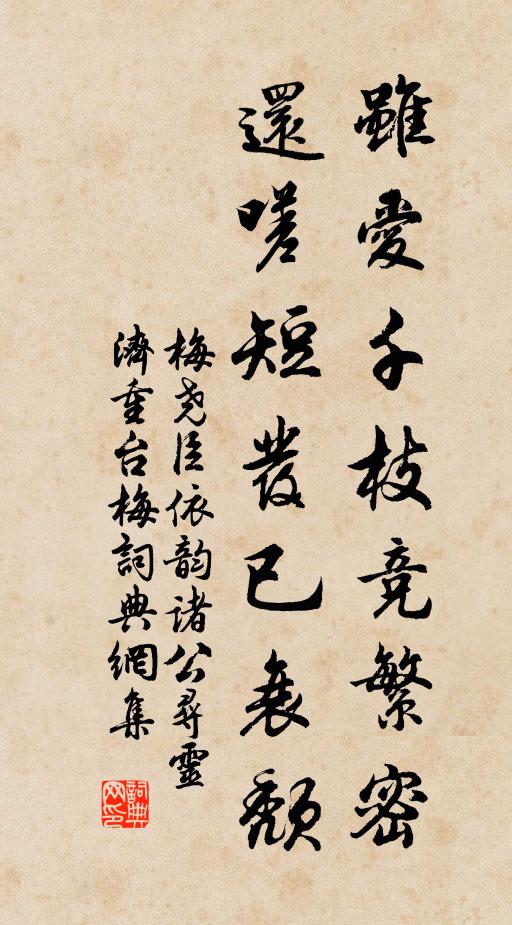 雖愛千枝竞繁密
還嗟短發已衰颓
梅尧臣依韵诸公尋靈
濟重台梅詞典網集
詞典网印